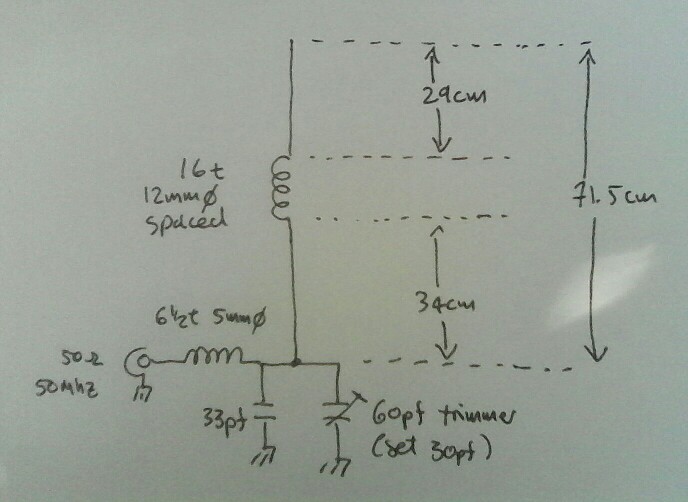 29cm
16t
12mmø
spaced
71.5cm
34cm
6½t 5mmø
50Ω
50Mhz
33pf
60pf trimmer
(set 30pf)